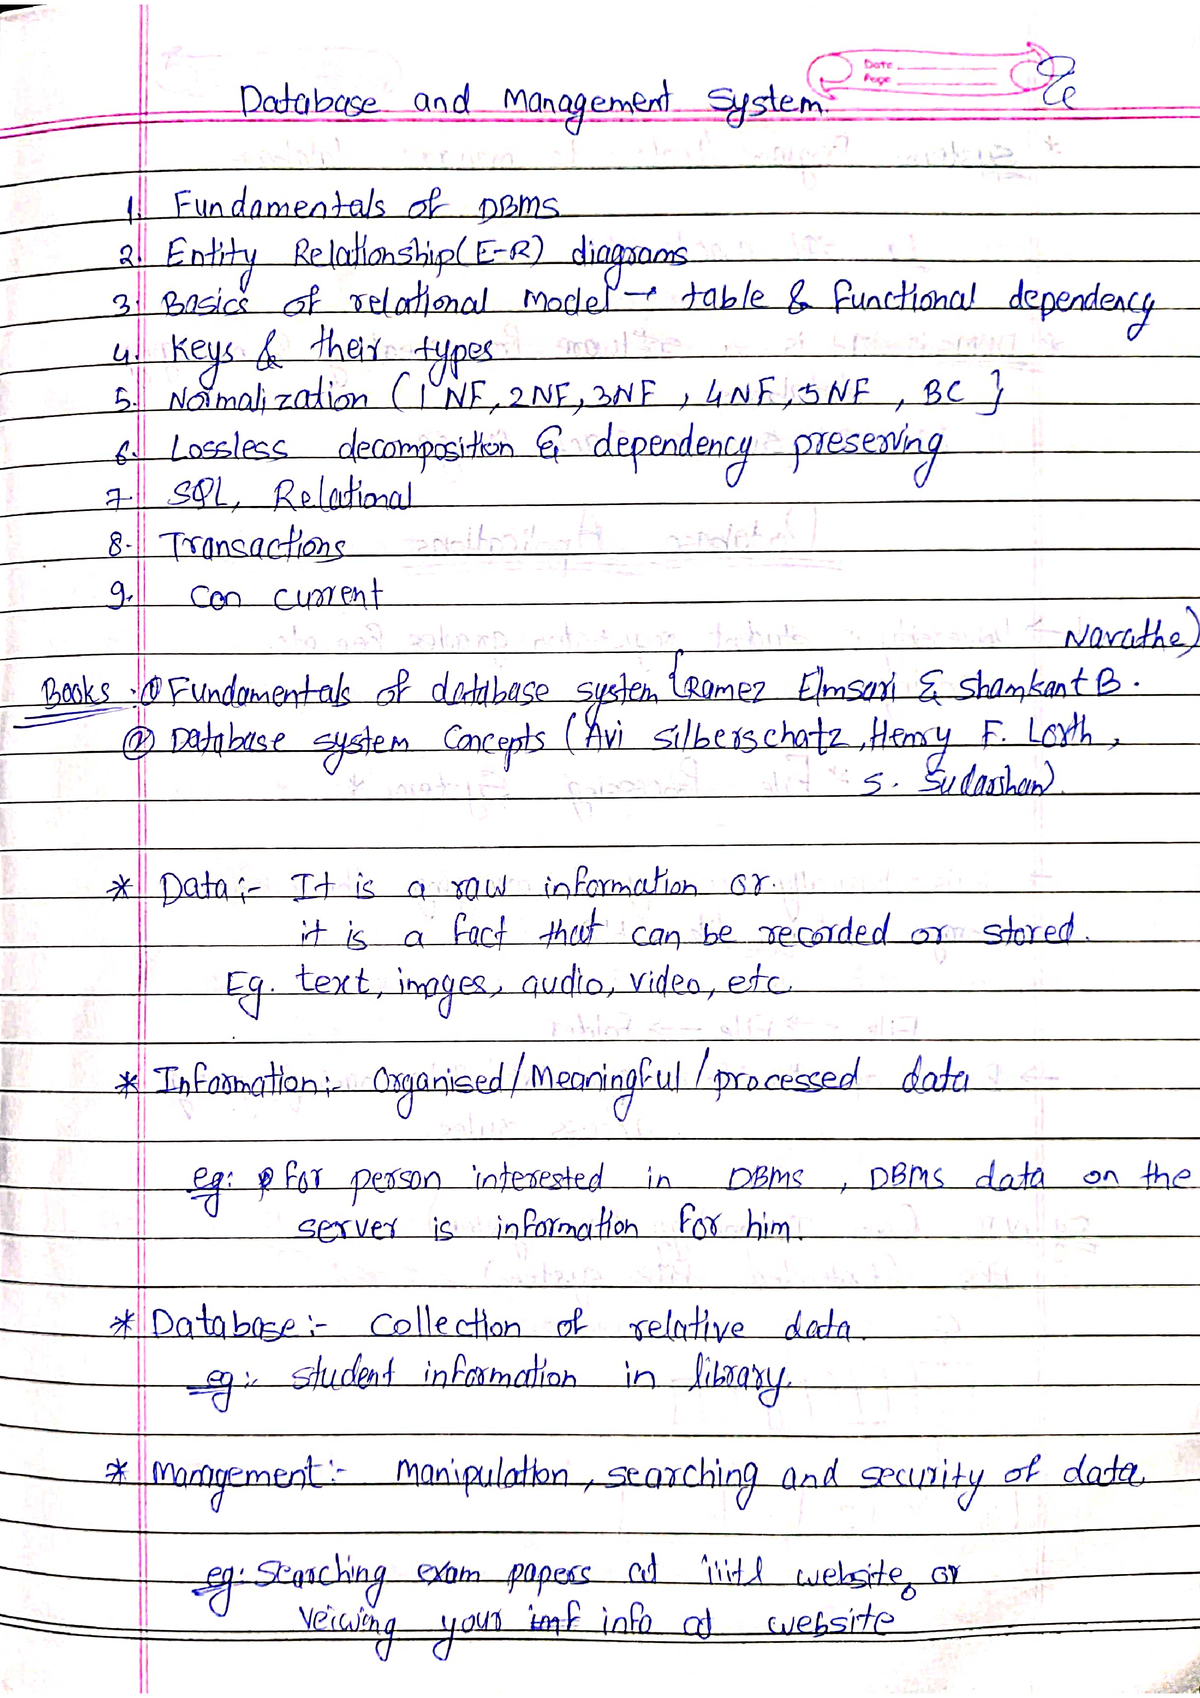 Date
Page
Database and Management System.
1. Fundamentals of DBMS
2. Entity Relationship (E-R) diagrams
3. Basics of relational model → table & functional dependency
4. Keys & their types
5. Normalization (1NF, 2NF, 3NF, 4NF, 5NF, BC }
6. Lossless decomposition & dependency preserving
7. SQL, Relational
8. Transactions
9. Con current
Navathe)
Books :- ① Fundamentals of database system (Ramez Elmsari & Shamkant B.
② Database system Concepts (Avi Silberschatz, Henry F. Lorth,
S. Sudarshan)
* Data :- It is a raw information or
it is a fact that can be recorded or stored.
Eg. text, images, audio, video, etc.
* Information :- Organised/Meaningful/processed data
eg: for person interested in DBMS, DBMS data on the
server is information for him.
* Database :- Collection of relative data.
eg :- student information in library.
* Management :- Manipulation, searching and security of data
eg: Searching exam papers at website, or
Veiwing your info at website